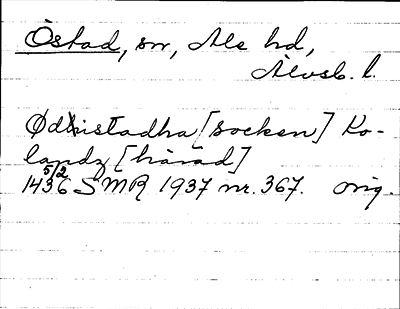 Östad, sn, Ale hd,
Älvsb. l.
Ødhistadha [socken] Ko-
landz [härad]
5/2
1436 SMR 1937 nr. 367. orig.